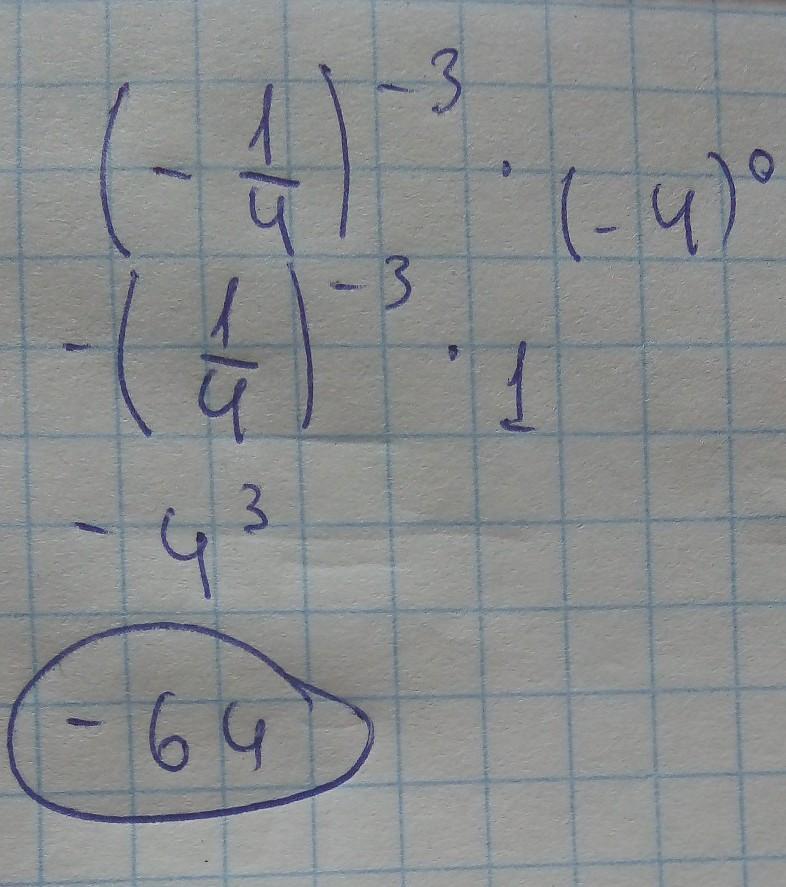 (- 1/4)^-3 · (-4)^0
-(1/4)^-3 · 1
- 4^3
- 64